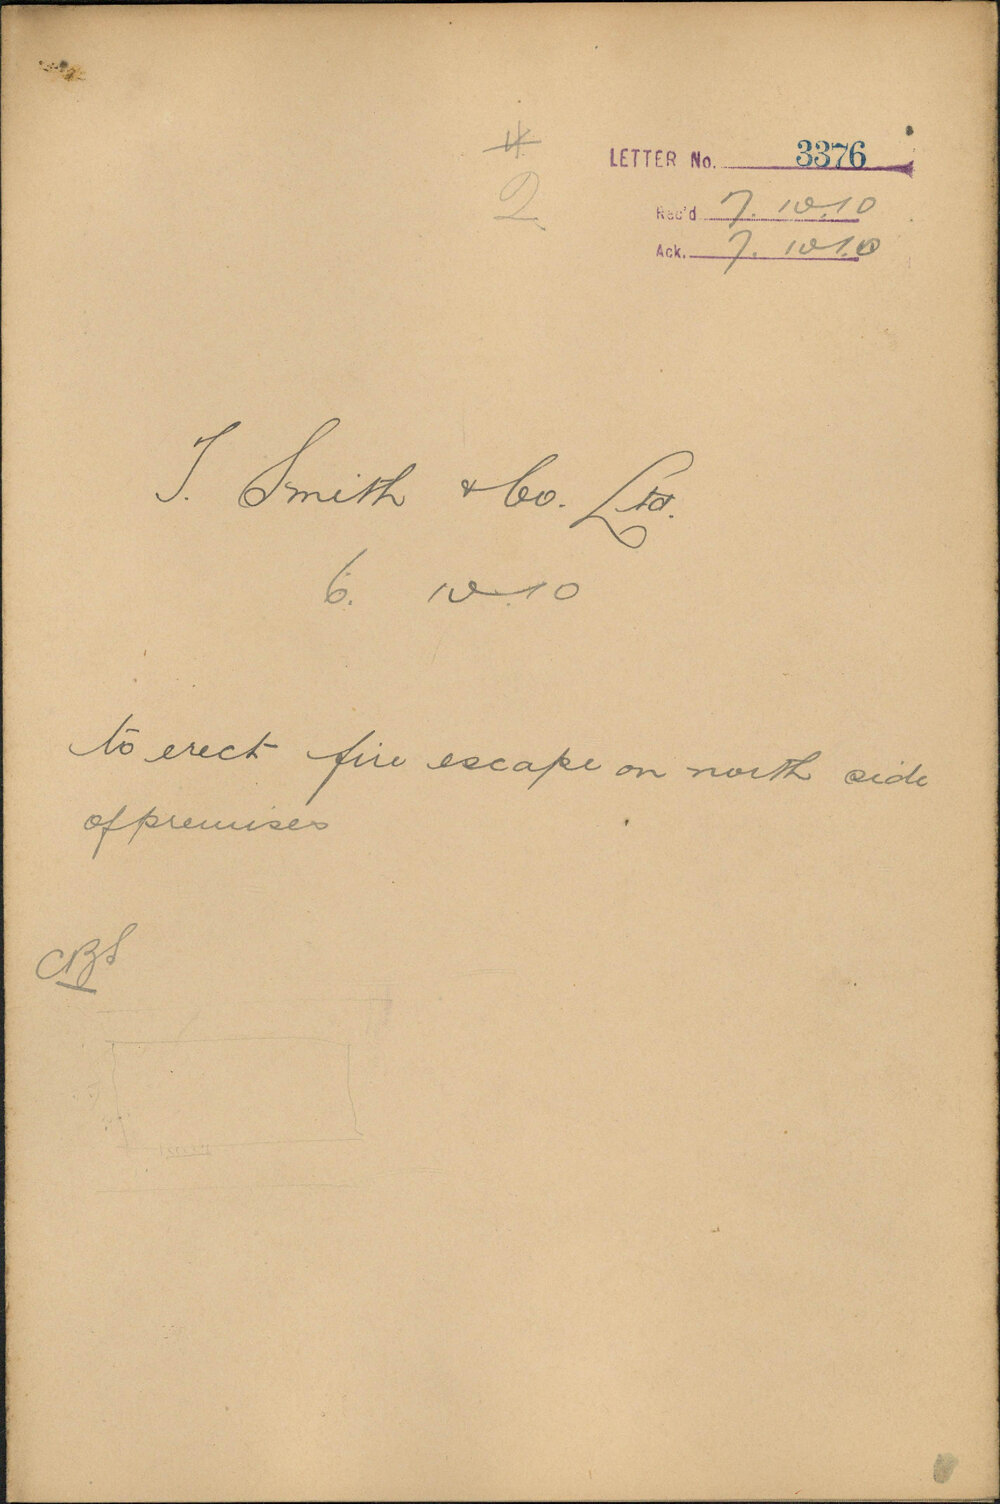 4
2
LETTER No. 3376
Rec'd 7. 12.10
Ack. 7. 12.10
T. Smith & Co. Ltd.
6. 12.10
to erect fire escape on north side
of premises
CBS